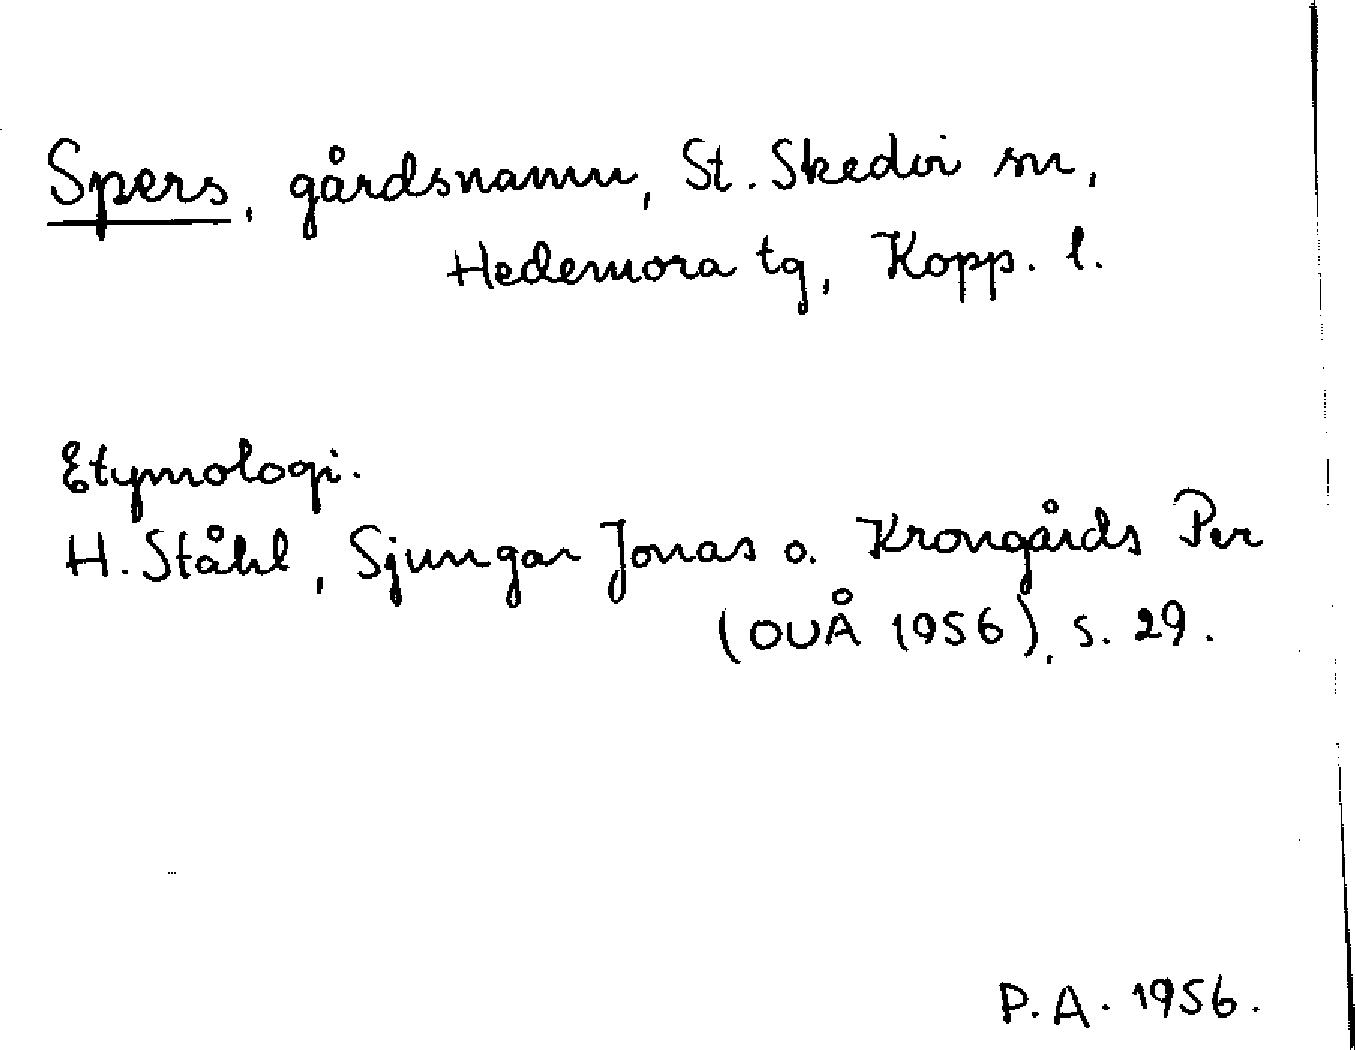 Spers, gårdsnamn, St. Skedvi sn,
Hedemora tg, Kopp. l.
Etymologi.
H. Ståhl, Sjungar Jonas o. Krongårds Per
(OUÅ 1956), s. 29.
P. A. 1956.